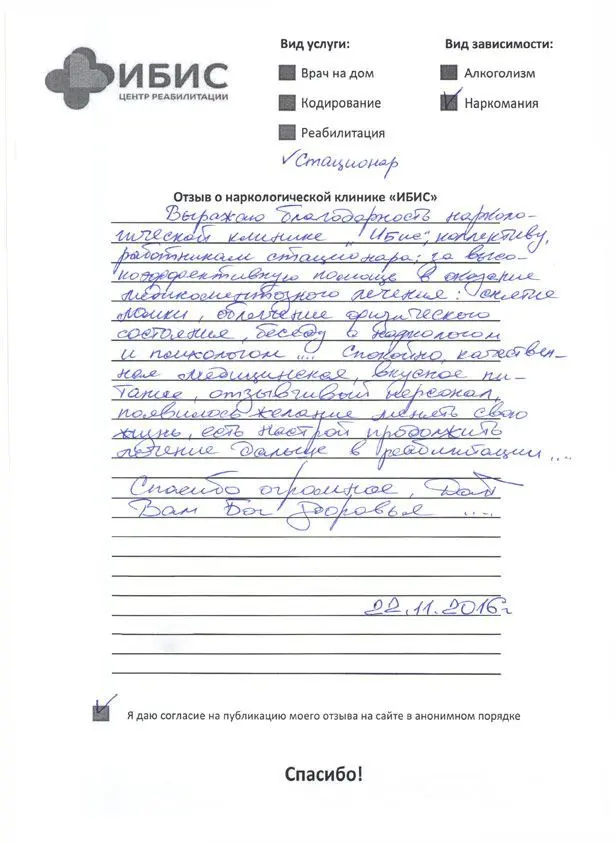 ИБИС
ЦЕНТР РЕАБИЛИТАЦИИ
Вид услуги:
Врач на дом
Кодирование
Реабилитация
Стационар
Вид зависимости:
Алкоголизм
Наркомания
Отзыв о наркологической клинике «ИБИС»
Выражаю благодарность нарколо-
гической клинике "Ибис", коллективу,
работникам стационара; за высо-
коэффективную помощь в оказание
медикаментозного лечения: снятие
ломки, облегчение физического
состояния, беседу с наркологом
и психологом .... Спокойно, качествен-
ная медицинская, вкусное пи-
тание, отзывчивый персонал,
появилось желание менять свою
жизнь, есть настрой продолжить
лечение дальше в реабилитации ....
Спасибо огромное, Дай
Вам Бог Здоровья ....
22.11.2016г
Я даю согласие на публикацию моего отзыва на сайте в анонимном порядке
Спасибо!